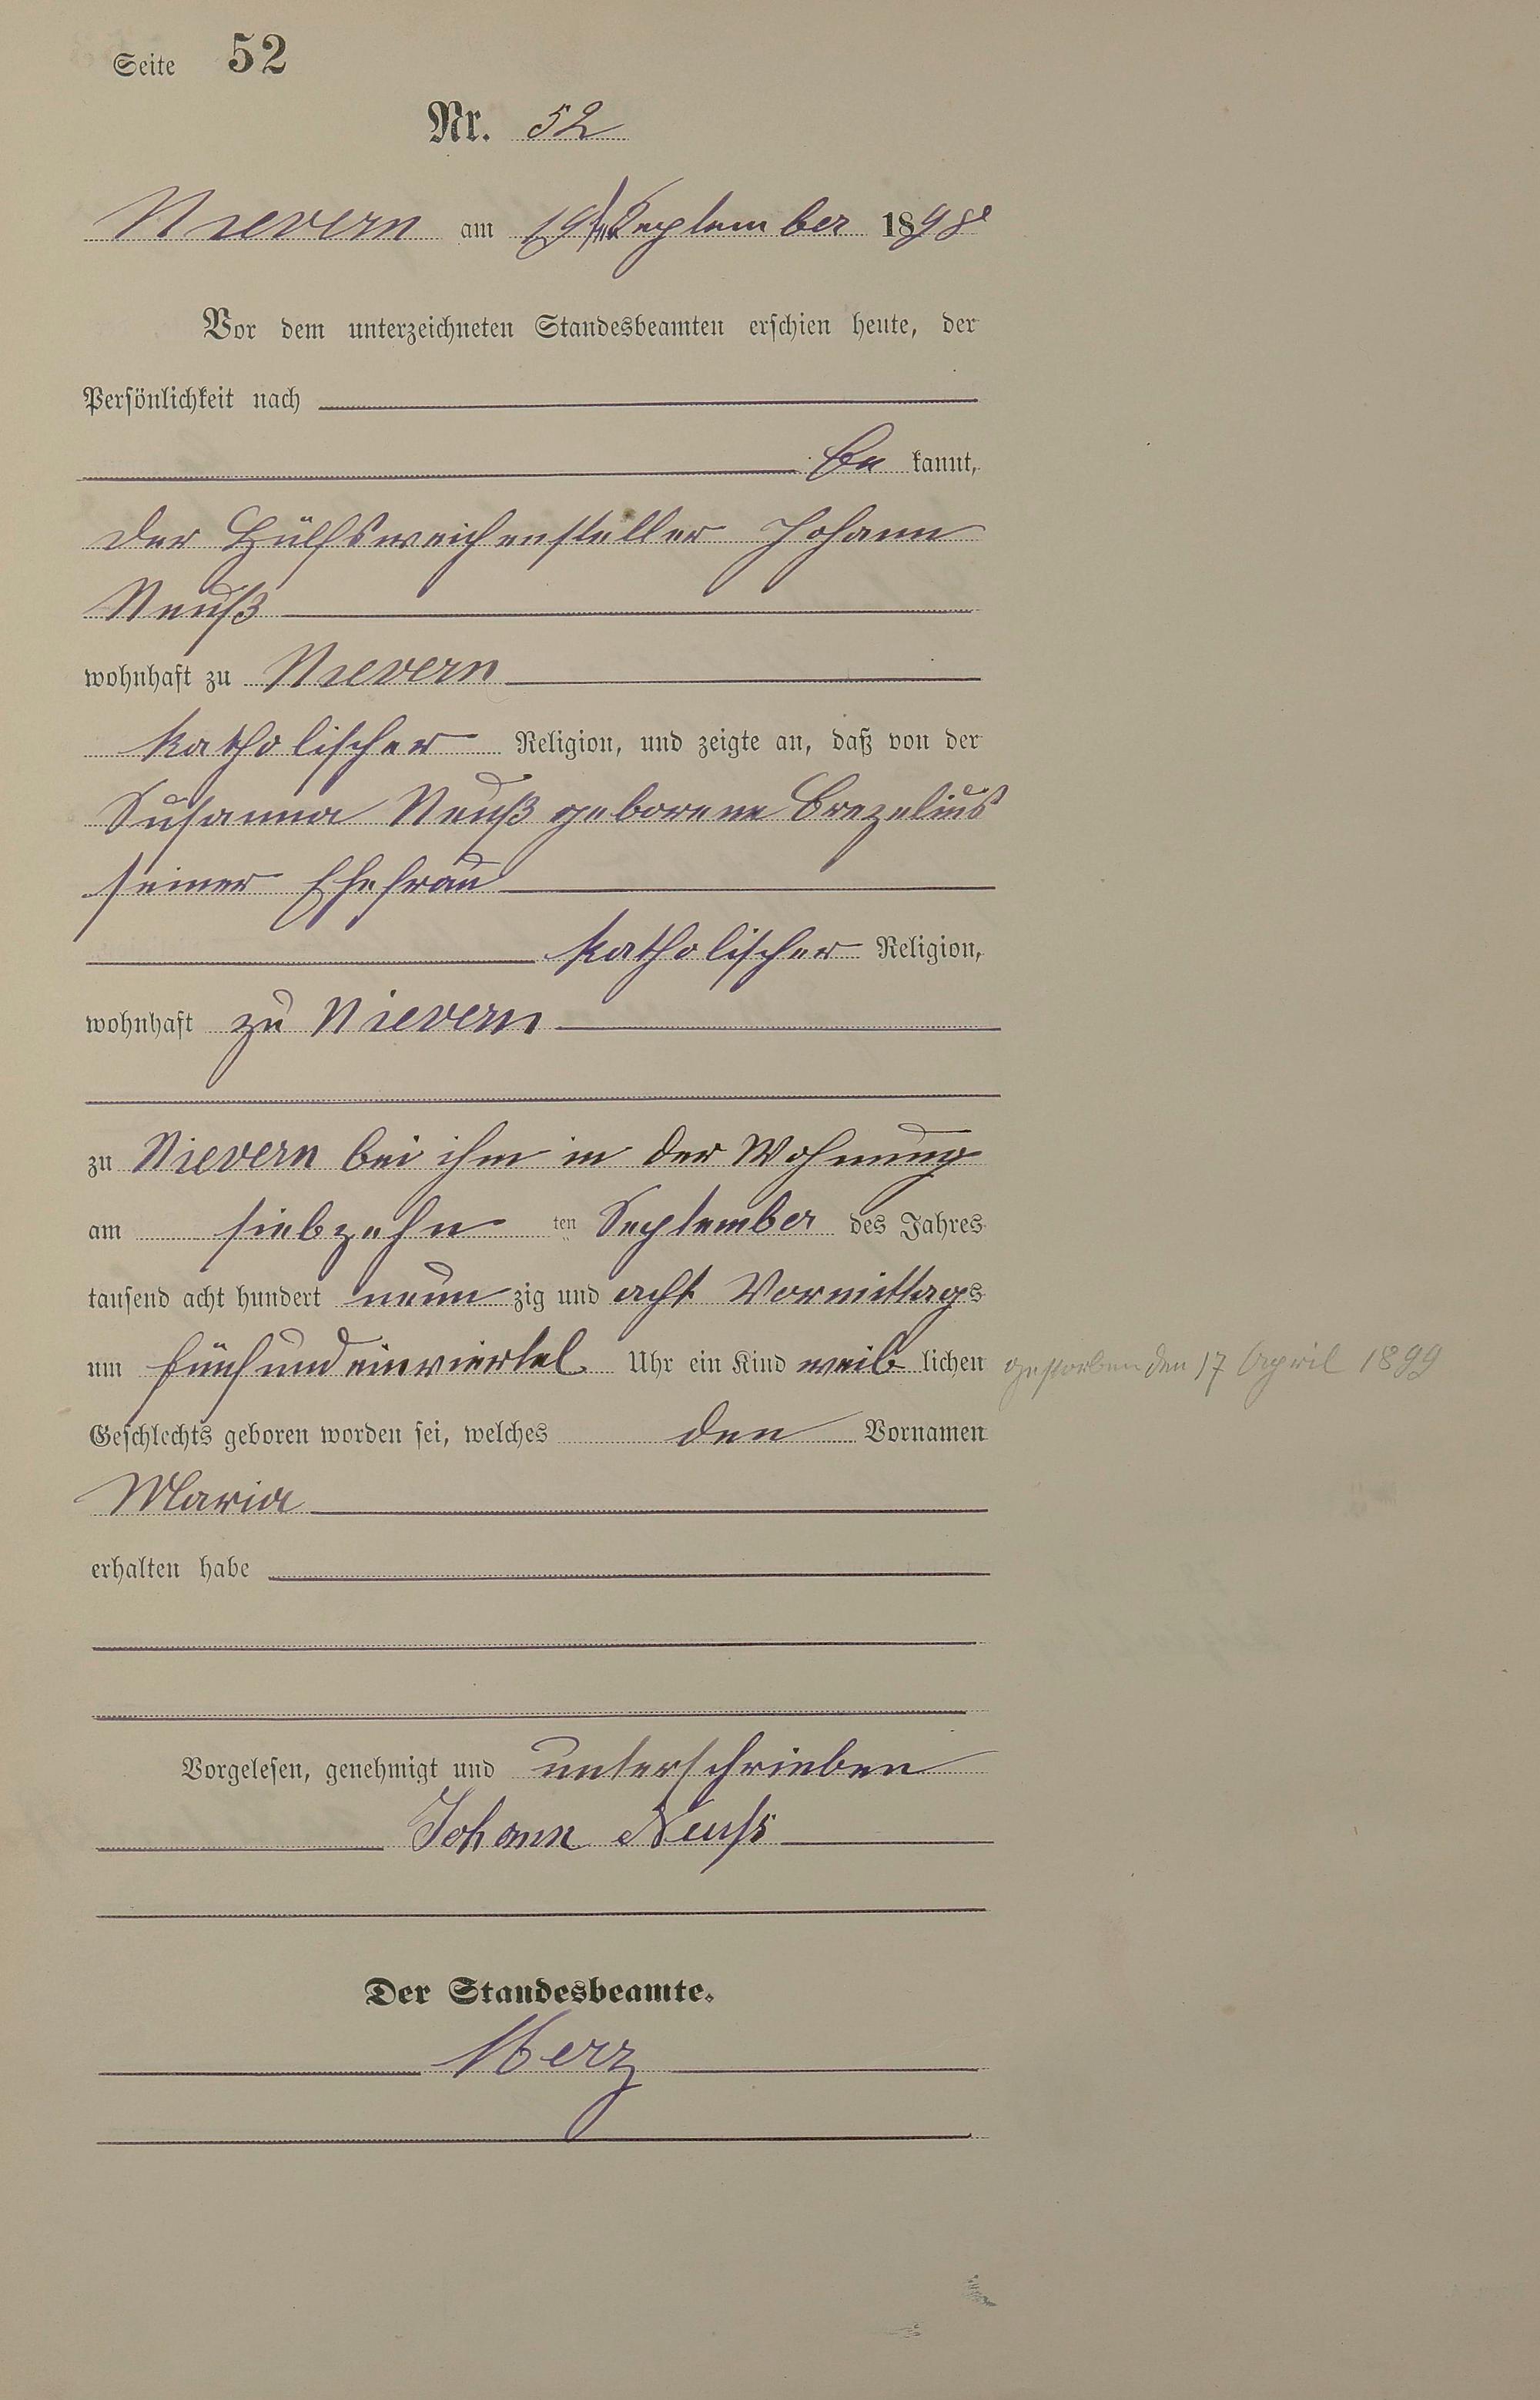 Seite 52
Nr. 52
Nievern am 19ten September 1898
Vor dem unterzeichneten Standesbeamten erschien heute, der
Persönlichkeit nach
be kannt,
der Hülfsweichensteller Johann
Neuß
wohnhaft zu Nievern
katholischer Religion, und zeigte an, daß von der
Susanna Neuß geborene Brezelius
seiner Ehefrau
katholischer Religion,
wohnhaft zu Nievern
zu Nievern bei ihm in der Wohnung
am siebzehn ten September des Jahres
tausend acht hundert neun zig und acht Vormittags
um fünf und einviertel Uhr ein Kind weib lichen gestorben den 17 April 1899
Geschlechts geboren worden sei, welches den Vornamen
Maria
erhalten habe
Vorgelesen, genehmigt und unterschrieben
Johann Neuß
Der Standesbeamte.
Merz